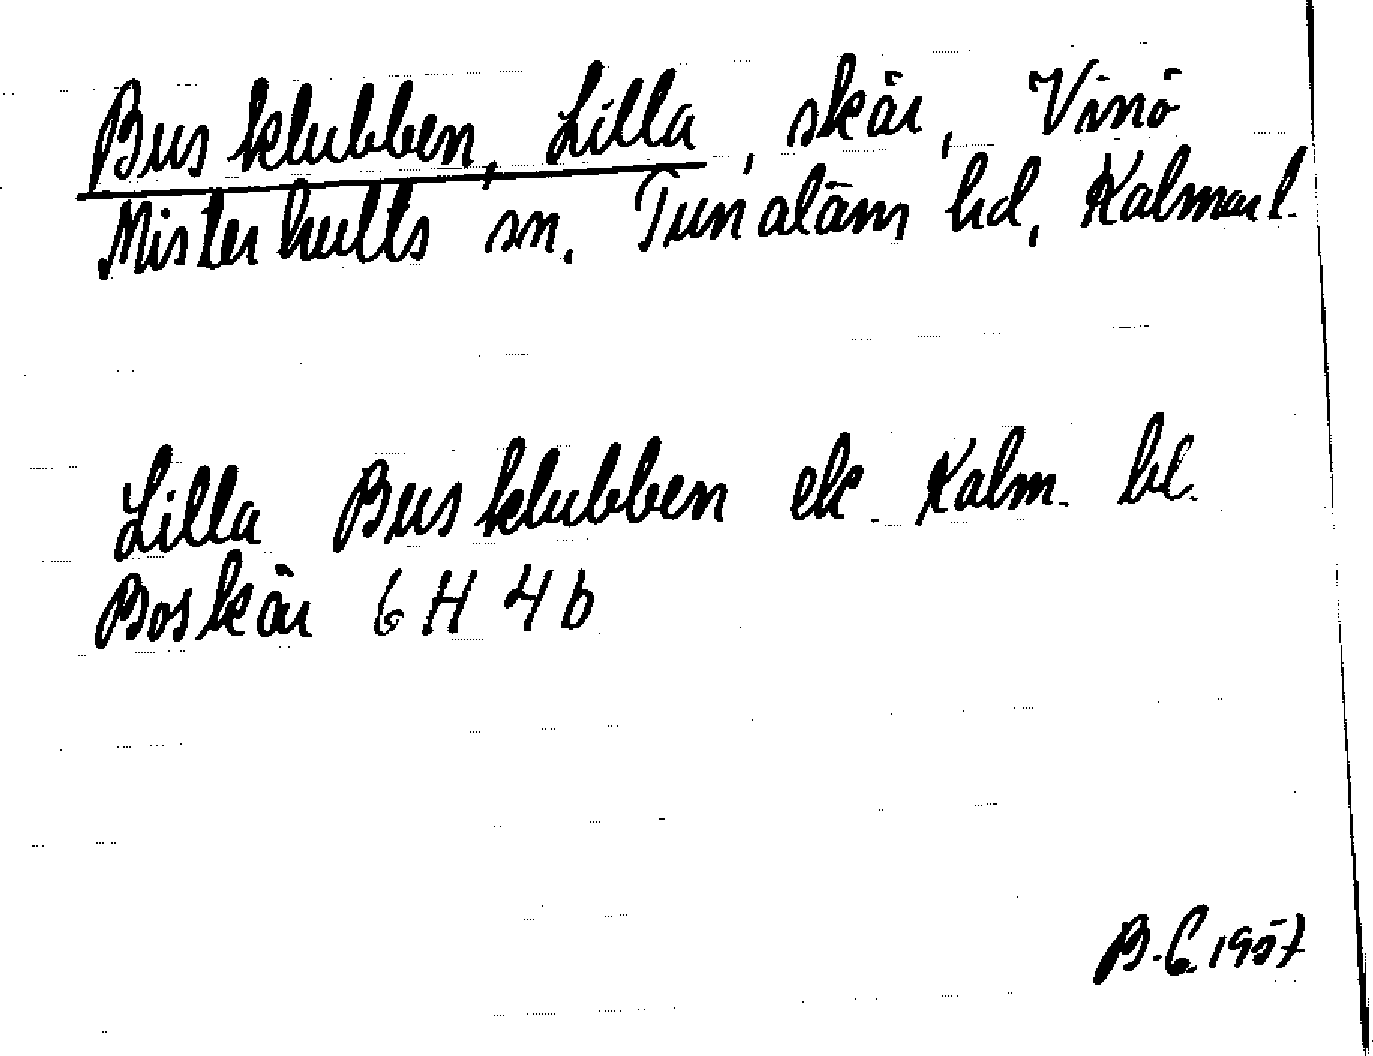 Busklubben, Lilla, skär, Vinö
Misterhults sn. Tunaläns hd, Kalmar l.
Lilla Busklubben ek. Kalm. bl.
Boskär 6H 4b
B.C. 1957